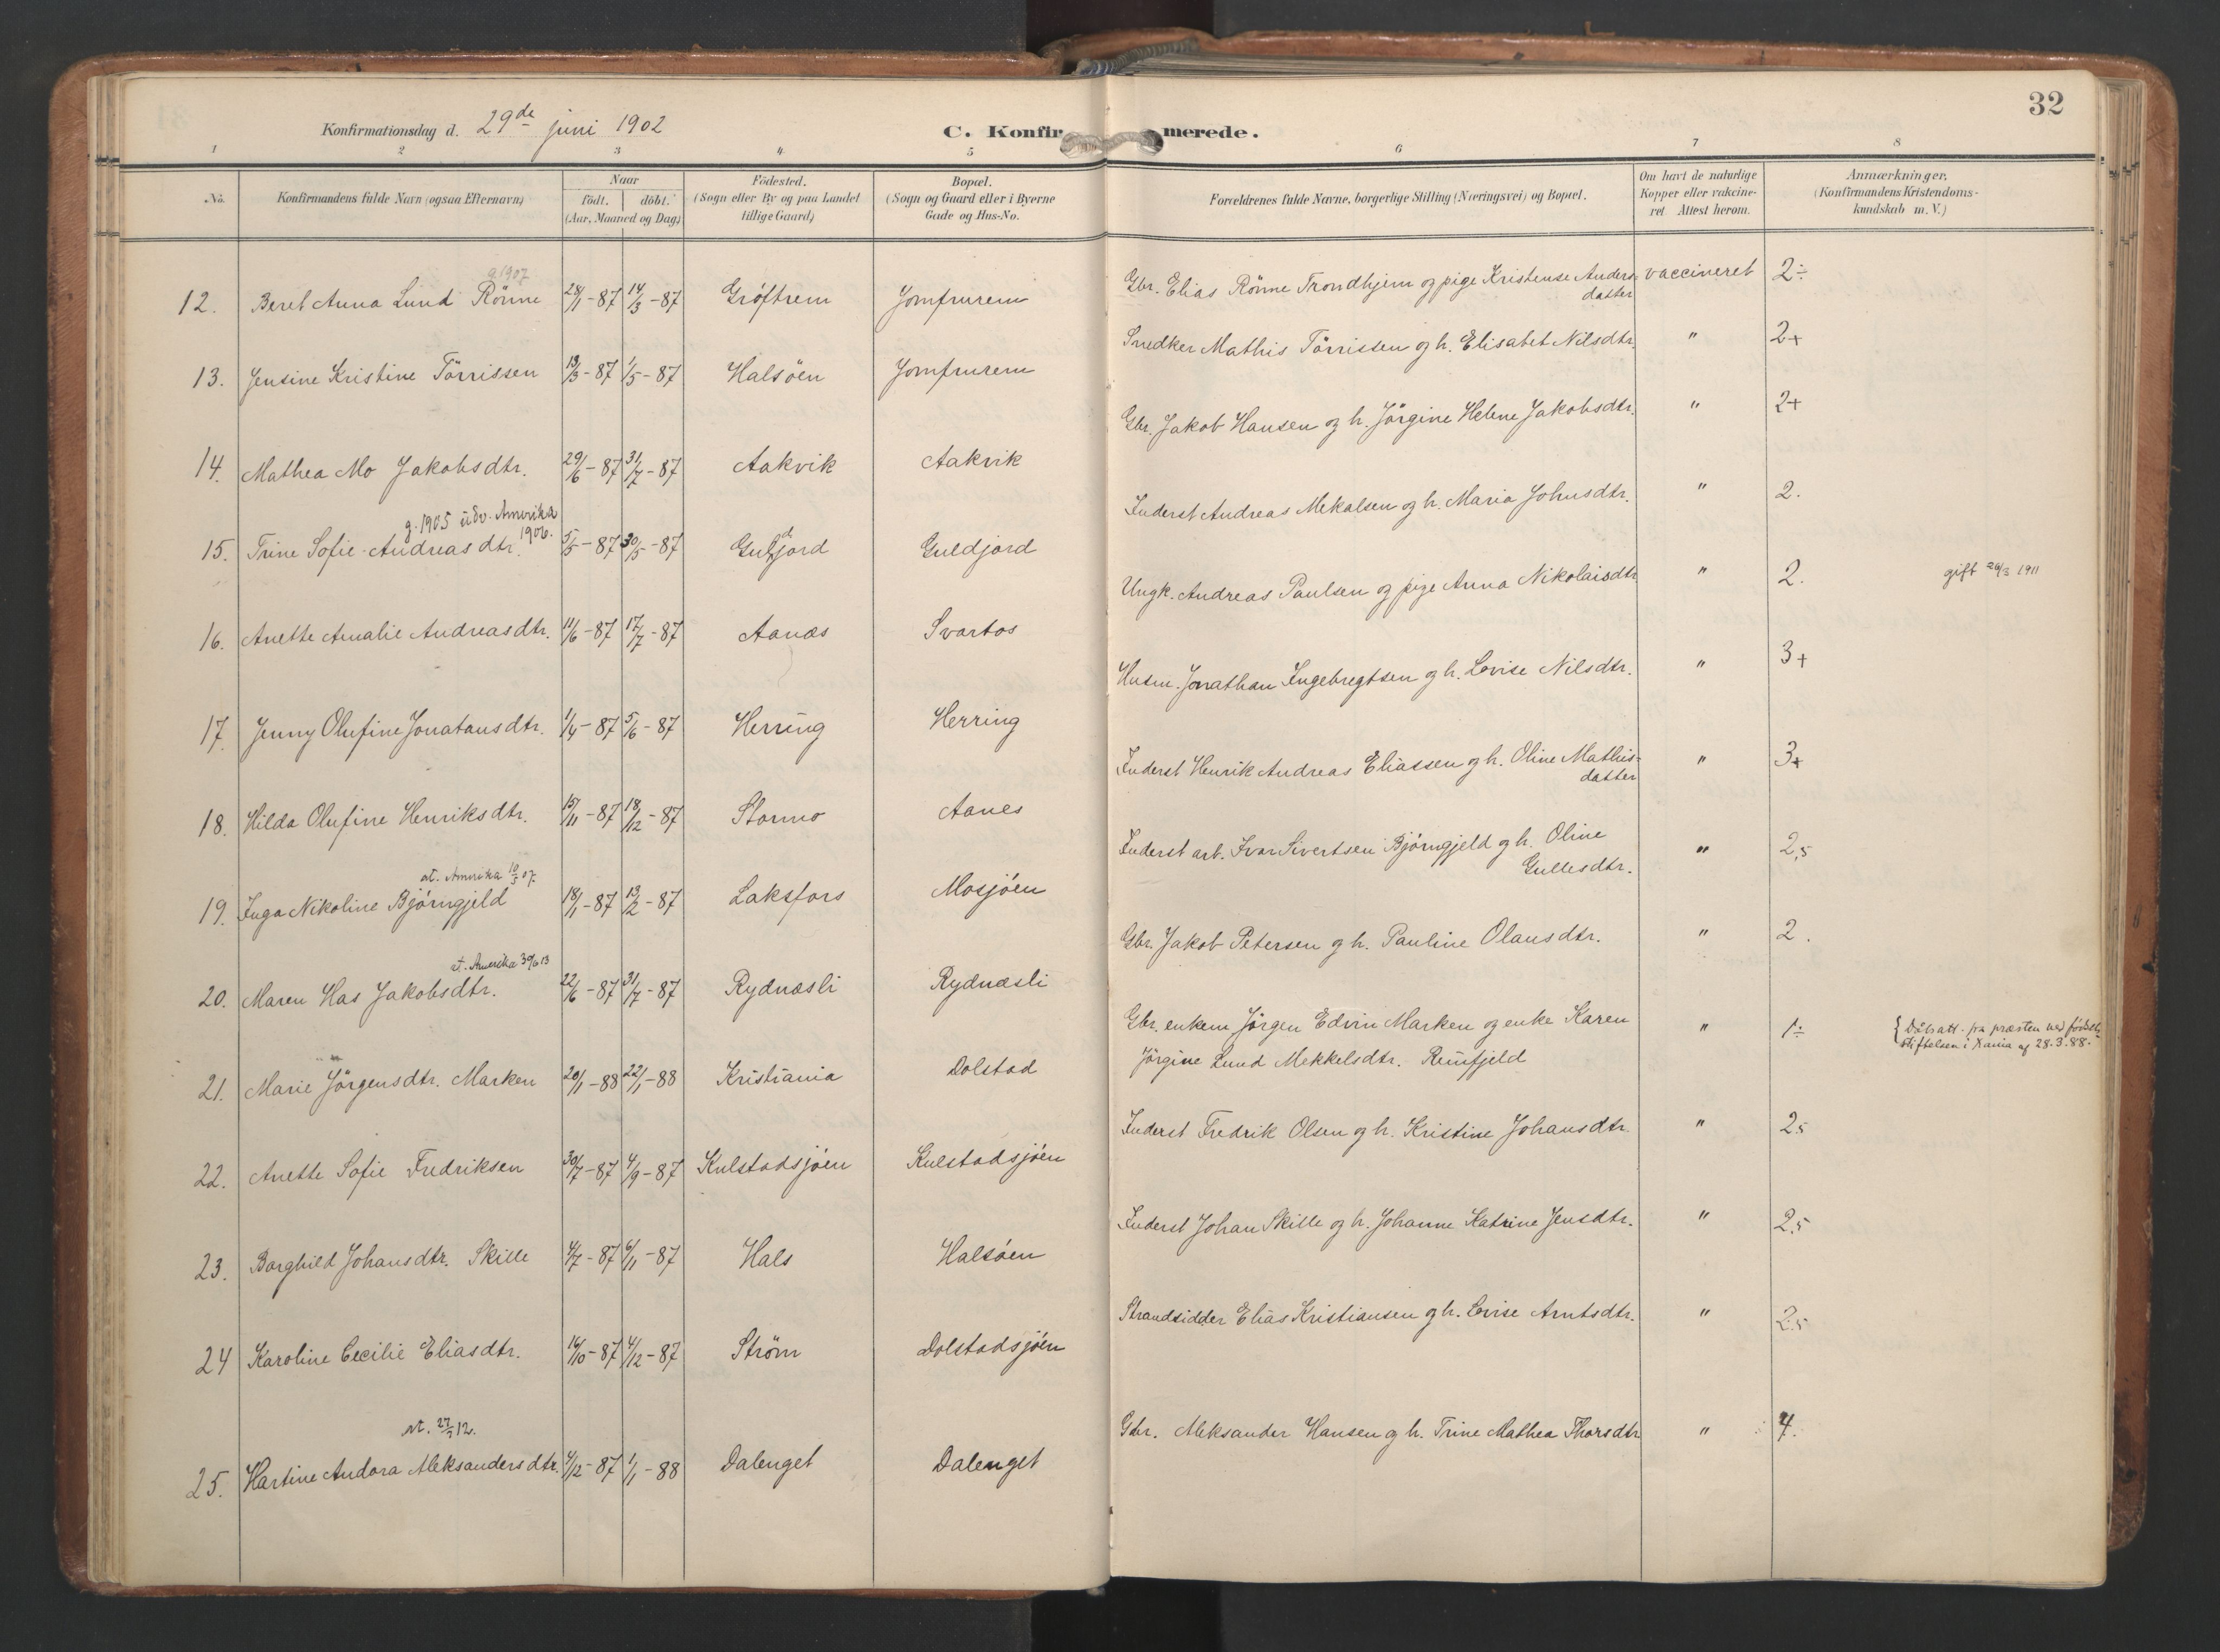 32
Konfirmationsdag d. 29de juni 1902
C. Konfirmerede.
1 2 3 4 5 6 7 8
No. Konfirmandens fulde Navn (ogsaa Efternavn)
Naar
födt. döbt.
(Aar, Maaned og Dag)
Födested.
(Sogn eller By og paa Landet
tillige Gaard)
Bopæl.
(Sogn og Gaard eller i Byerne
Gade og Hus-No.
Forældrenes fulde Navne, borgerlige Stilling (Næringsvei) og Bopæl.
Om havt de naturlige
Kopper eller vakcine-
ret Attest herom.
Anmærkninger.
(Konfirmandens Kristendoms-
kundskab m. V.)
g. 1907
12. Beret Anna Lund Rönne 28/1-87 14/3-87 Gróftrem Jomfrurem Gbr. Elias Rönne Trondhjem og pige Kristense Anders- vaccineret 2÷
datter
13. Jensine Kristine Törrissen 13/3-87 1/5-87 Halsöen Jomfrurem Snedker Mathis Törrissen og h. Elisabet Nilsdtr. " 2+
14. Mathea Mo Jakobsdtr. 29/6-87 31/7-87 Aakvik Aakvik Gbr. Jakob Hansen og h. Jörgine Helene Jakobsdtr. " 2+
g. 1905 udv. Amerika
1906.
15. Trine Sofie Andreasdtr. 5/5-87 30/5-87 Guldjord Guldjord Inderst Andreas Mekalsen og h. Maria Johnsdtr. " 2.
16. Anette Amalie Andreasdtr. 11/6-87 17/7-87 Aanæs Svartos Ungk. Andreas Paulsen og pige Anna Nikolaisdtr " 2. gift 26/3 1911
17. Jenny Olufine Jonatansdtr. 1/4-87 5/6-87 Herring Herring Husm. Jonathan Ingebregtsen og h. Lovise Nilsdtr. " 3+
18. Hilda Olufine Henriksdtr. 15/11-87 18/12-87 Stormo Aanes Inderst Henrik Andreas Eliassen og h. Oline Mathis- " 3+
datter
at. Amerika 10/5 07.
19. Inga Nikoline Bjórngjeld 18/1-87 13/2-87 Laksfors Mosjóen Inderst arb. Ivar Sivertsen Bjórngjeld og h. Oline " 2,5
Gullesdtr.
at. Amerika 30/6 13
20. Maren Has Jakobsdtr. 22/6-87 31/7-87 Rydnæsli Rydnæsli Gbr. Jakob Petersen og h. Pauline Olausdtr. " 2.
21. Marie Jörgensdtr. Marken 20/1-88 22/1-88 Kristiania Dolstad Gbr. enkem Jörgen Edvin Marken og enke Karen " 1÷ Dåbsatt. fra præsten ved födsels-
Jörgine Lund Mekkelsdtr. Reinfjeld stiftelsen i Xania af 28.3.88.
22. Anette Sofie Fredriksen 30/7-87 4/9-87 Kulstadsjóen Kulstadsjóen Inderst Fredrik Olsen og h. Kristine Johansdtr. " 2.5
23. Borghild Johansdtr. Skille 4/7-87 6/11-87 Hals Halsóen Inderst Johan Skille og h. Johanne Katrine Jensdtr. " 2.5
24 Karoline Cecilie Eliasdtr. 16/10-87 4/12-87 Ström Dolstadsjóen Strandsidder Elias Kristiansen og h. Lovise Arntsdtr. " 2.5
at. 27/2 12.
25. Hartine Andora Aleksandersdtr. 4/12-87 1/1-88 Dalenget Dalenget Gbr. Aleksander Hansen og h. Trine Mathea Thorsdtr " 4.